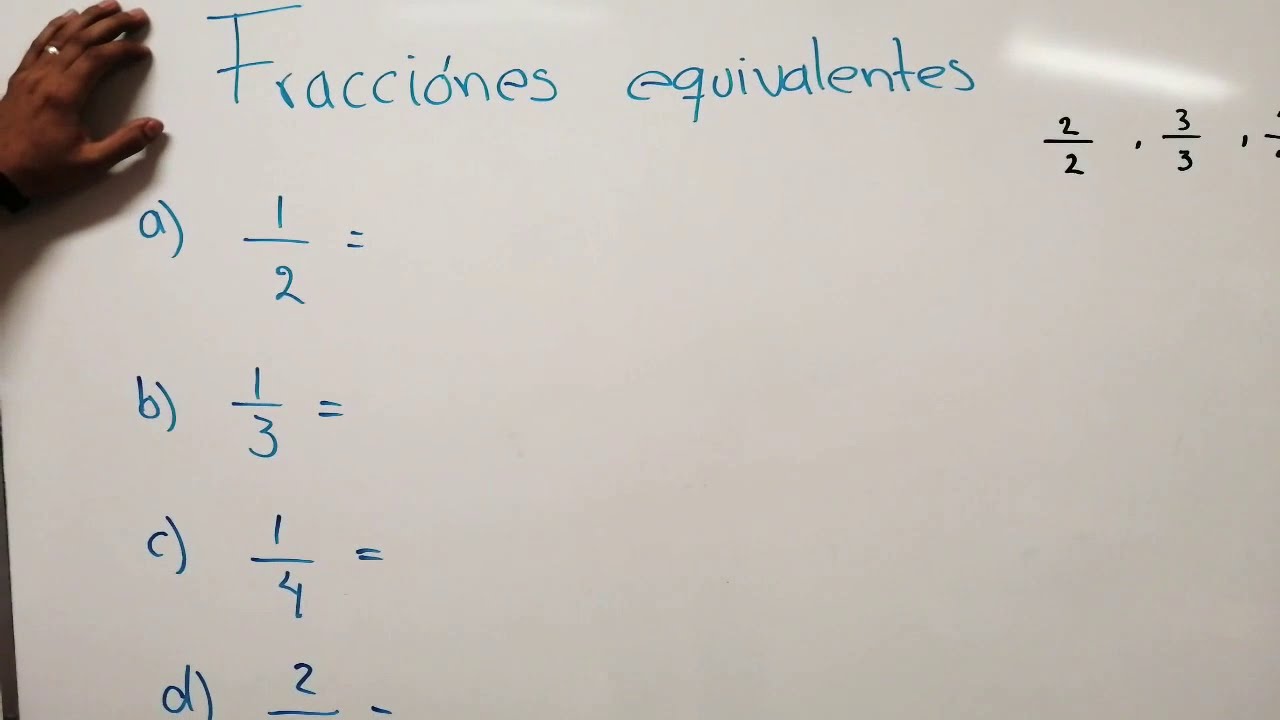 Fracciónes equivalentes
2/2 , 3/3 ,
a) 1/2 =
b) 1/3 =
c) 1/4 =
d) 2